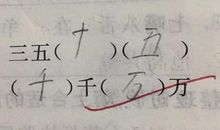 三五(十)(五)
(千)千(百)万